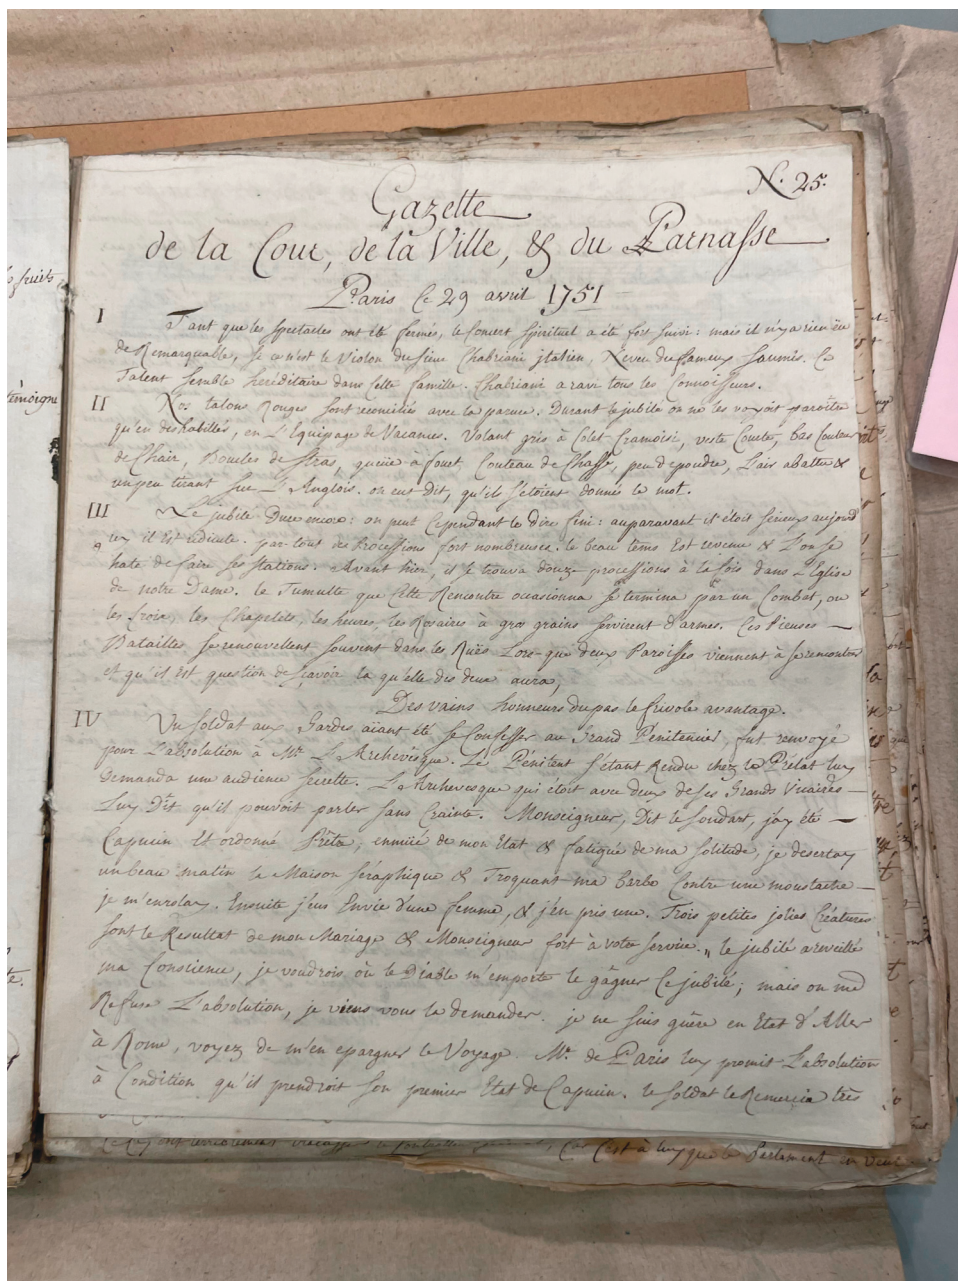 N.º 25.
Gazette
de la Cour, de la Ville, & du Parnasse
Paris Ce 29 avril 1751
I Tant que les Spectacles ont été fermés, le Concert Spirituel a été fort Suivi: mais il n'y a rien eu
de Remarquable, Si ce n'est le Violon du Sieur Chabriani jtalien, Neveu du fameux Saumis. Ce
Talent Semble hereditaire dans Cette famille. Chabriani a ravi tous les Connoisseurs.
II Nos talons Rouges Sont reconciliés avec la parure. Durant le jubilé on ne les voyoit paroître
qu'en deshabillés, en L'Equipage de Vacances. Volant gris à Colet Cramoisi, veste Courte, bas Couleur
de Chair, Boucles de Stras, queüe à fouet, Couteau de Chasse, peu de poudre, L'air abattu &
un peu tirant Sur L'Anglois. on eut dit, qu'ils S'étoient donnés le mot.
III Le jubilé Dure encore: on peut Cependant le dire fini: auparavant il étoit Serieux aujourd'
huy il est ridicule. par-tout des Processions fort nombreuses. le beau tems Est revenu & L'on Se
hate de faire Ses Stations. Avant hier, il Se trouva douze processions à la fois dans L'Eglise
de notre Dame. le Tumulte que Cette Rencontre occasionna Se termina par un Combat, ou
les Croix, les Chapelets, les heures, les Rosaires à gros grains Servirent d'armes. Ces Pieuses —
Batailles Se renouvellent Souvent dans les Ruës Lors-que deux Paroisses viennent à Se rencontrer
et qu'il est question de Sçavoir la qu'elle des deux aura,
Des vains honneurs du pas le frivole avantage.
IV Un Soldat aux Gardes aïant été Se Confesser au Grand Pénitencier, fut renvoyé
pour L'absolution à Mr. L'Archevêsque. Le Pénitent S'étant Rendu chez le Prélat luy
demanda une audience Secrette. L'Archevesque qui étoit avec deux de Ses Grands Vicaires —
Luy Dit qu'il pouvoit parler Sans Crainte. Monseigneur, Dit le Soudart, j'ay été —
Capucin Et ordonné Prêtre, ennuié de mon Etat & fatigué de ma Solitude, je desertay
un beau matin la Maison Séraphique & Troquant ma barbe Contre une moustache —
je m'enrolay. Ensuite j'eus Envie d'une femme, & j'en pris une. Trois petites jolies Créatures
Sont le Resultat de mon Mariage & Monseigneur fort à votre Service. „ le jubilé a reveillé
ma Conscience, je voudrois, où le Diable m'emporte le gâgner Ce jubilé; mais on me
Refuse L'absolution, je viens vous la demander. je ne Suis guère en Etat d'Aller
à Rome, voyez de m'en epargner le Voyage. Mr. de Paris luy promit L'absolution
à Condition qu'il prendroit Son premier Etat de Capucin. le Soldat le Remercia très